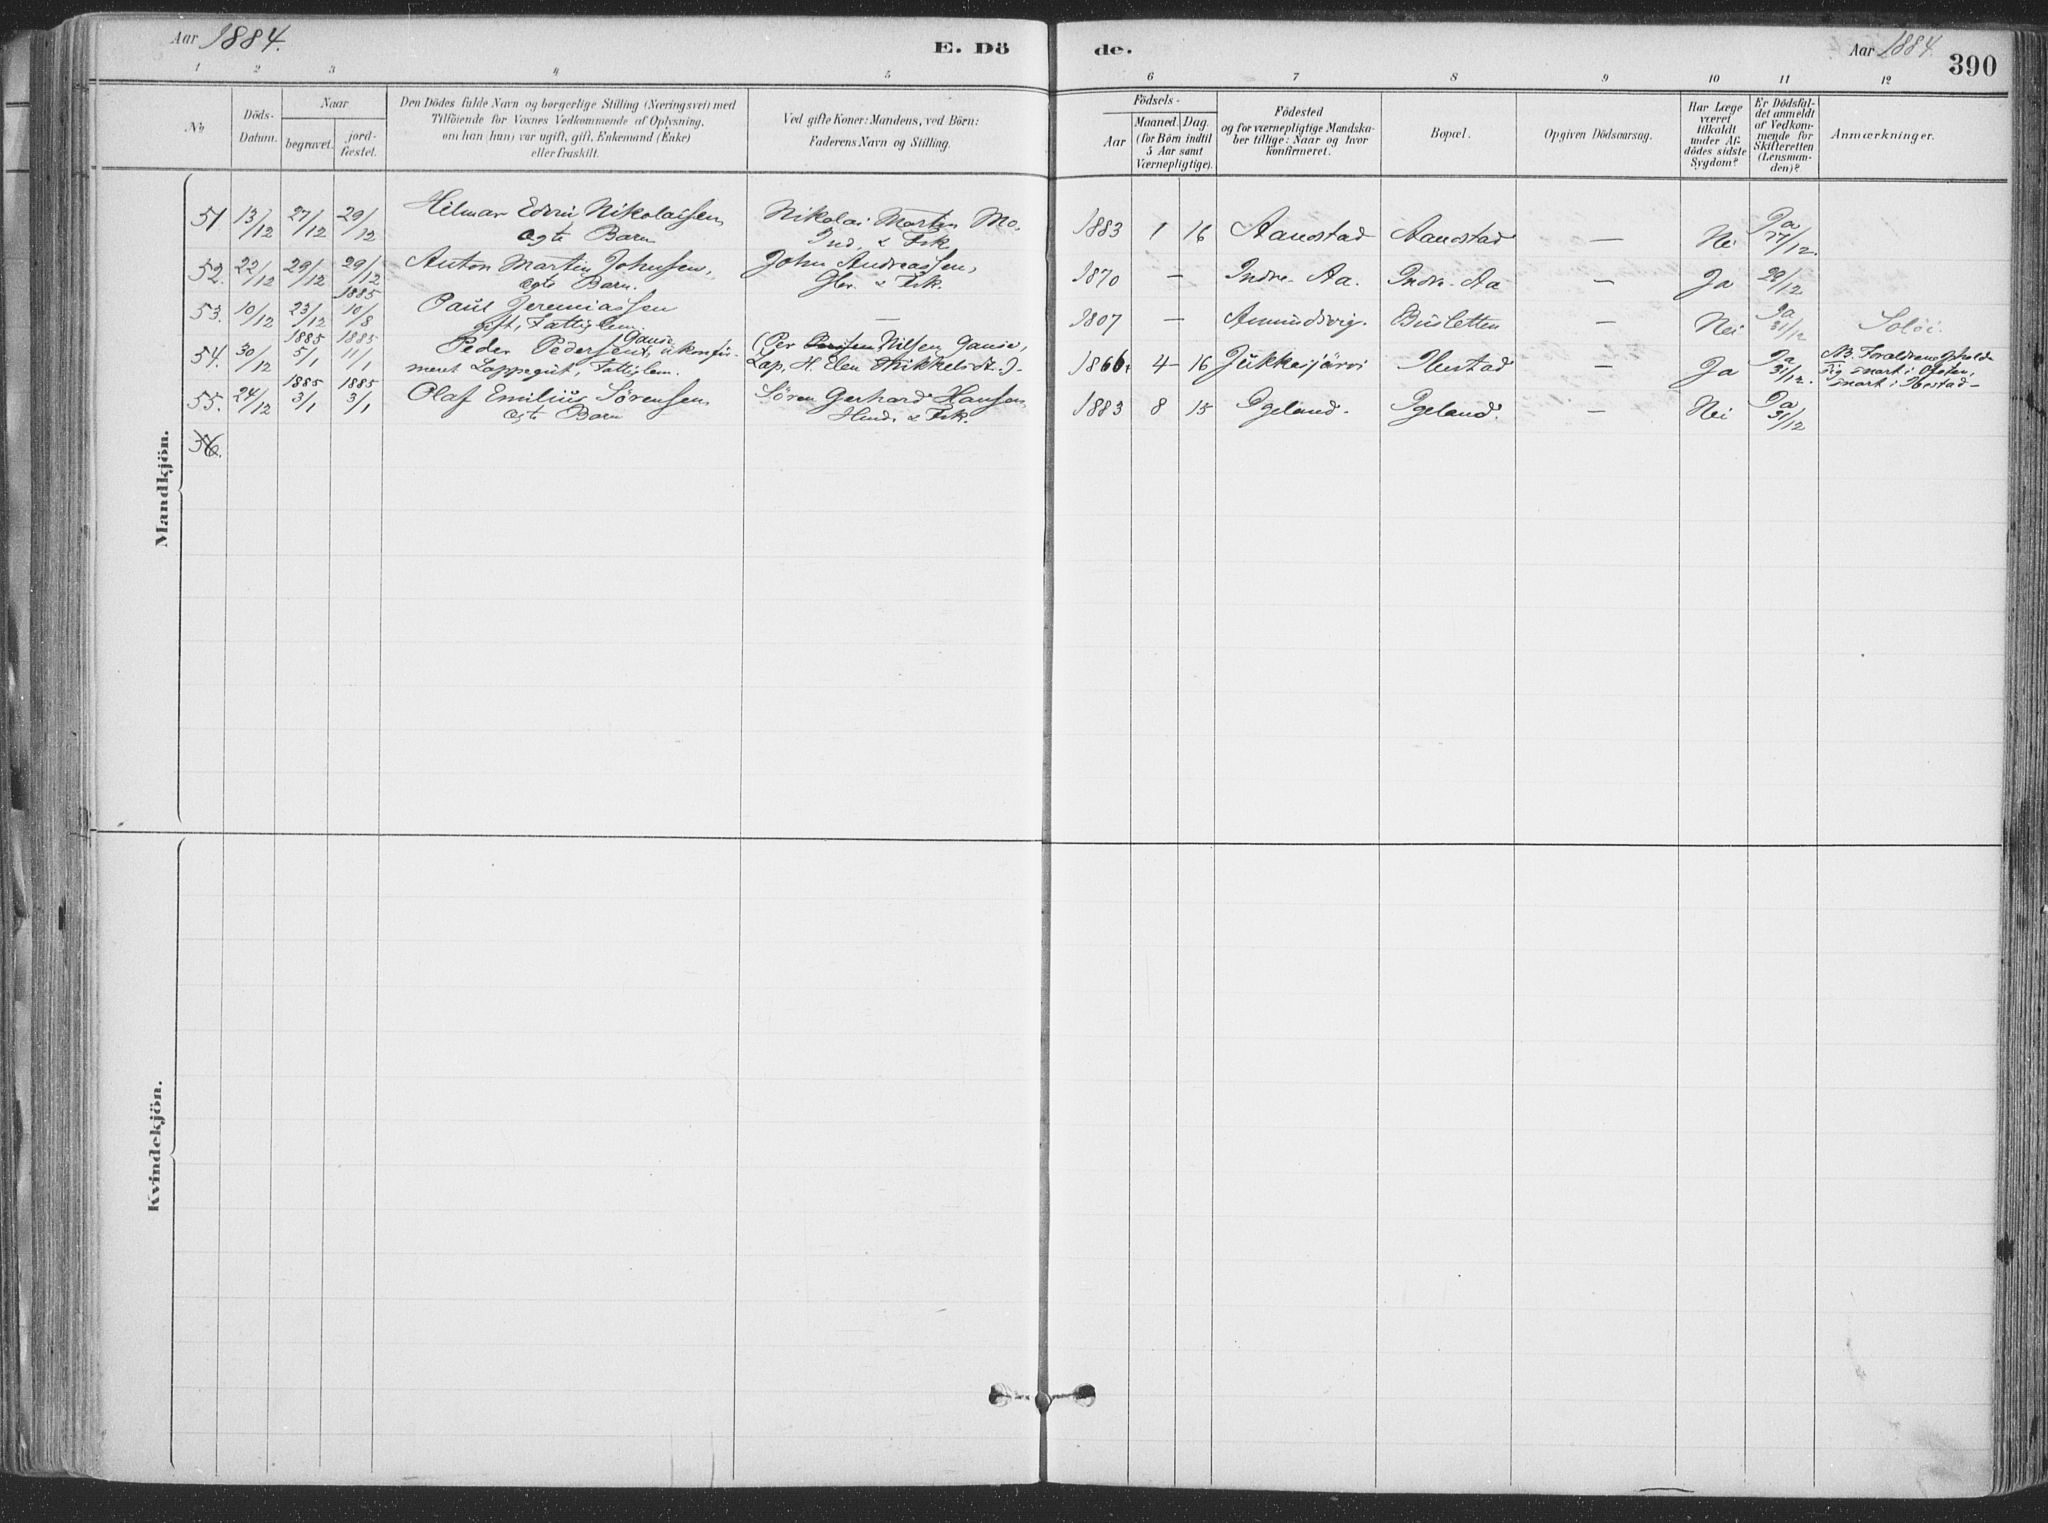 Aar 1884.
E. Dö de.
Aar 1884.
390
1 2 3 4 5 6 7 8 9 10 11 12
No
Döds-Datum.
Naar
begravet.
jord-fæstet.
Den Dödes fulde Navn og borgerlige Stilling (Næringsvei) med
Tilföiende for Voxnes Vedkommende af Oplysning,
om han (hun) var ugift, gift, Enkemand (Enke)
eller fraskilt.
Ved gifte Koner: Mandens, ved Börn:
Faderens Navn og Stilling.
Födsels-
Aar
Maaned. Dag.
(for Börn indtil
5 Aar samt
Værnepligtige).
Födested
og for værnepligtige Mandska-
ber tillige: Naar og hvor
konfirmeret.
Bopæl.
Opgiven Dödsaarsag.
Har Læge
været
tilkaldt
under Af-
dödes sidste
Sygdom?
Er Dödsfal-
det anmeldt
af Vedkom-
mende for
Skifteretten
(Lensman-
den)?
Anmærkninger.
Mandkjön.
51 13/12 27/12 29/12 Hilmar Edvin Nikolaissen Nikolai Martin Mo. 1883 1 16 Aanstad Aanstad — Nei Ja 27/12.
ægte Barn Ind. & Fsk.
52. 22/12 29/12 29/12 Anton Martin Johnsen, John Andreassen, 1870 — Indre-Aa. Indre-Aa — Ja 29/12
ægte Barn. & Fsk.
53. 10/12 23/12 1885 10/8 Paul Jeremiassen — 1807 — Amundsvig. Bûsletten — Nei Ja 31/12 Solöi.
gift, Fattiglem.
54. 30/12 1885 5/1 1885 11/1 Peder Pedersen Gause, ukonfir- (Per Nilsen Gause, 1866. 4 — 16 Jukkesjärvi Ibestad — Ja Ja 31/12. NB. Forældrene opholde
meret Lappegut, Fattiglem. Lap, H. Elen Mikkelsdt.) - sig snart i Ofoten,
snart i Ibestad —
55. 24/12 1885 3/1 1885 3/1 Olaf Emilius Sörensen Sören Gerhard Hansen 1883 8 15 Ygeland. Ygeland. — Nei Ja 31/12
ægte Barn Husm. & Fsk.
56.
Kvindekjön.